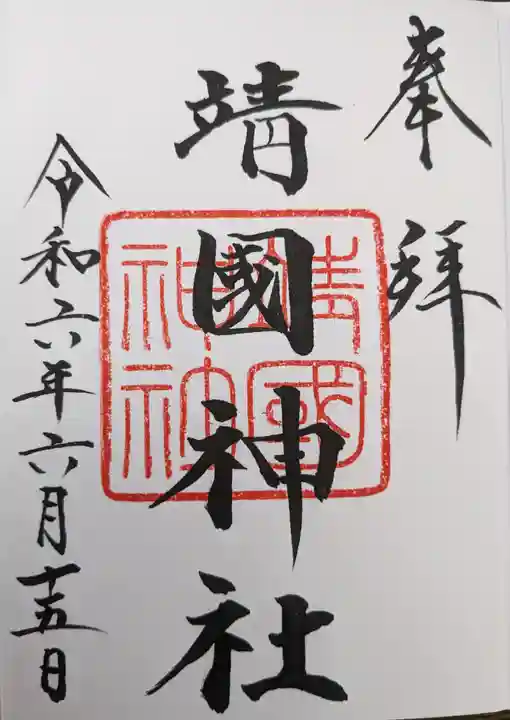 奉拝
靖國神社
靖國
神社
令和六年六月十五日